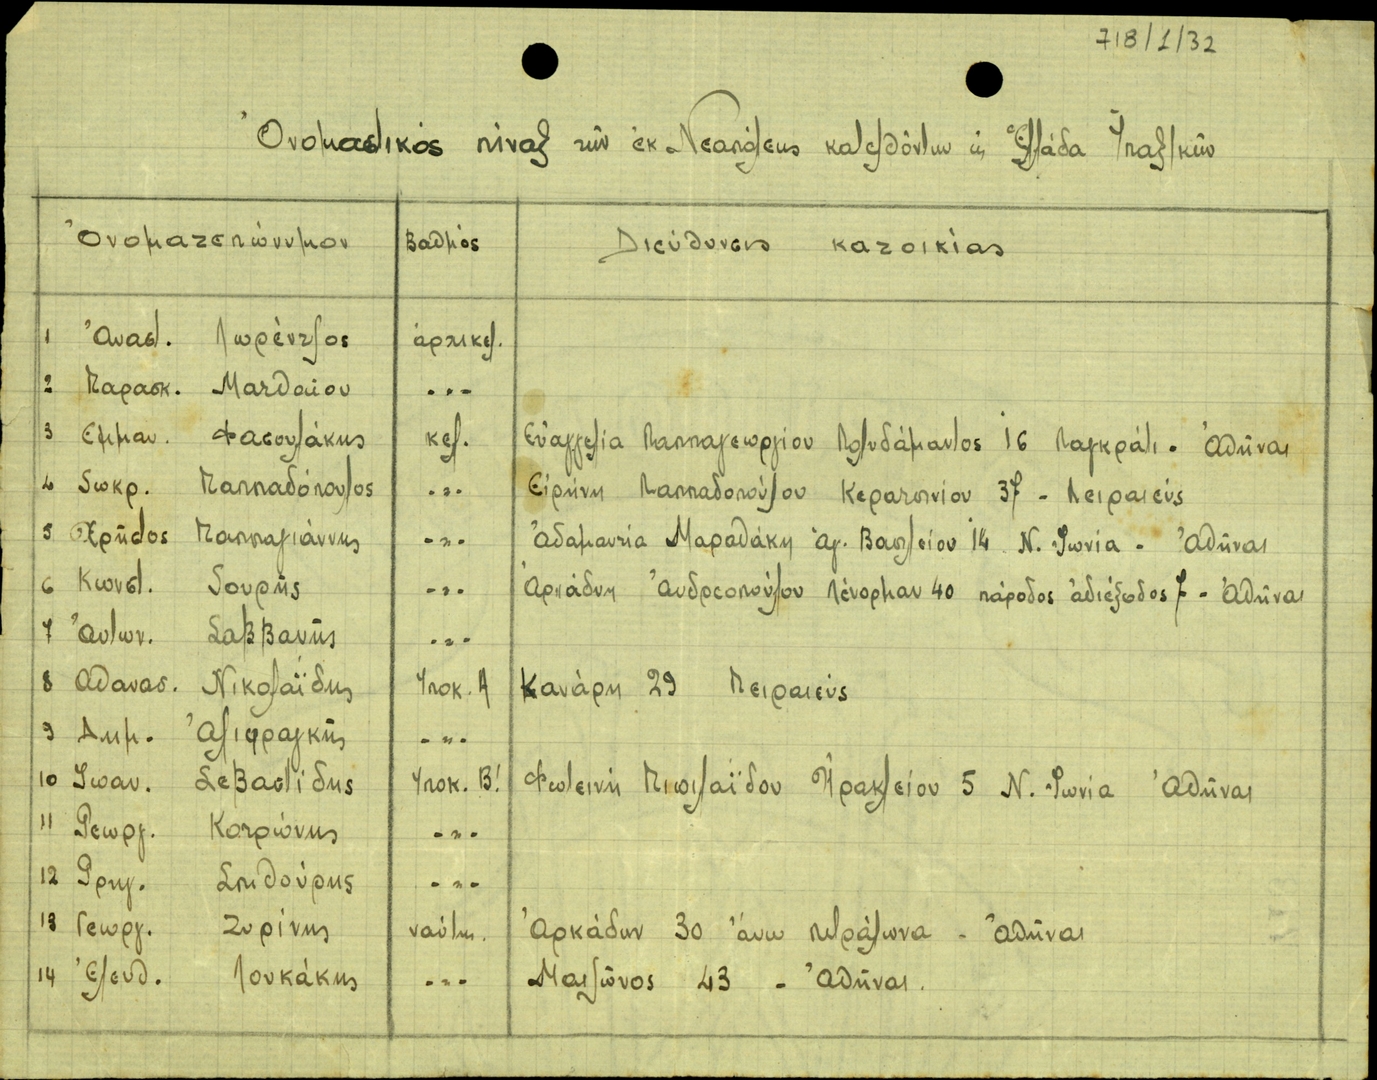 718/1/32
Ὀνομαστικός πίναξ τῶν ἐκ Νεαπόλεως κατελθόντων εἰς Ἑλλάδα Ὑπαξ/κῶν
Ὀνοματεπώνυμον Βαθμός Διεύθυνσις κατοικίας
1 Ἀναστ. Λωρέντζος ἀρχικελ.
2 Παρασκ. Ματθαίου -"-
3 Εμμαν. Φασουλάκης κελ. Εὐαγγελία Παππαγεωργίου Πολυδάμαντος 16 Παγκράτι - Ἀθῆναι
4 Σωκρ. Παππαδόπουλος -"- Εἰρήνη Παππαδοπούλου Κερατσινίου 37 - Πειραιεύς
5 Χρῆστος Παππαγιάννης -"- Ἀδαμαντία Μαραθάκη Ἁγ. Βασιλείου 14 Ν. Ἰωνία - Ἀθῆναι
6 Κωνστ. Σουρῆς -"- Ἀριάδνη Ἀνδρεοπούλου Λένορμαν 40 πάροδος ἀδιέξοδος 7 - Ἀθῆναι
7 Ἀντων. Σαββανῆς -"-
8 Αθανασ. Νικολαΐδης Ὑποκ. Α Κανάρη 29 Πειραιεύς
9 Δημ. Ἀλιφραγκῆς -"-
10 Ἰωαν. Σεβαστίδης Ὑποκ. Β! Φωτεινή Ἡρακλείου 5 Ν. Ἰωνία Ἀθῆναι
11 Γεωργ. Κοτρώνης -"-
12 Γρηγ. -"-
13 Γεωργ. Ζυρίνης ναύτης. Ἀρκάδων 30 ἄνω πετράλωνα - Ἀθῆναι
14 Ἐλευθ. Λουκάκης -"- Μαιζῶνος 43 - Ἀθῆναι.